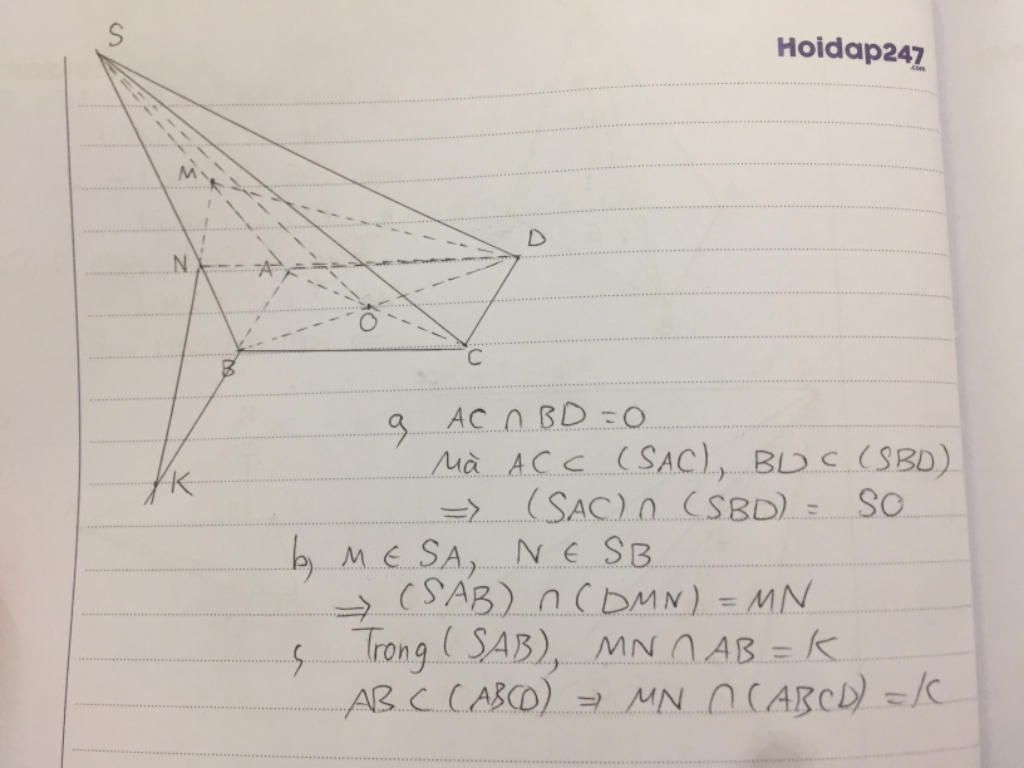 S
Hoidap247
.com
M
D
N
A
O
B
C
K
a, AC ∩ BD = O
Mà AC ⊂ (SAC), BD ⊂ (SBD)
⇒ (SAC) ∩ (SBD) = SO
b, M ∈ SA, N ∈ SB
⇒ (SAB) ∩ (DMN) = MN
c, Trong (SAB), MN ∩ AB = K
AB ⊂ (ABCD) ⇒ MN ∩ (ABCD) = K